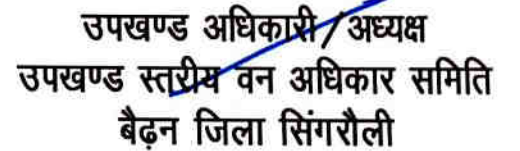 उपखण्ड अधिकारी/अध्यक्ष
उपखण्ड स्तरीय वन अधिकार समिति
बैढ़न जिला सिंगरौली